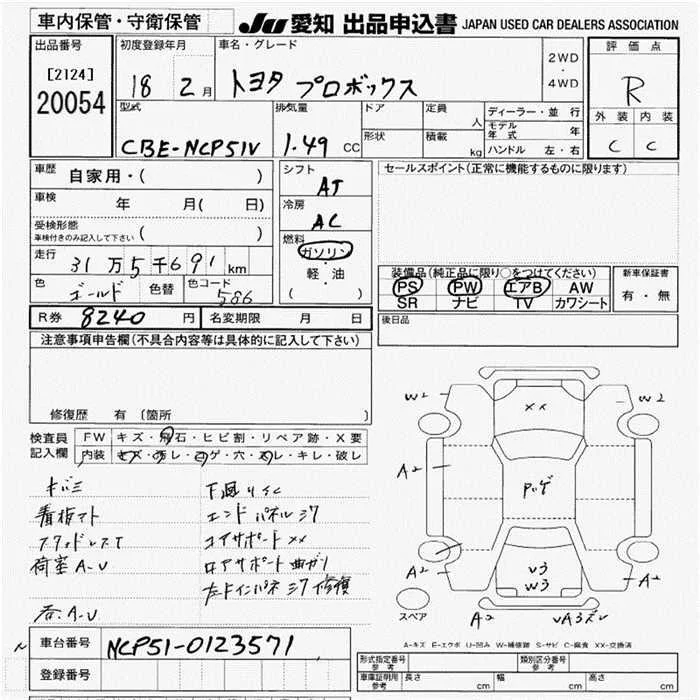 車内保管・守衛保管
JU 愛知 出品申込書 JAPAN USED CAR DEALERS ASSOCIATION
出品番号 初度登録年月 車名・グレード 評価点
[2124]
20054
18 2月 トヨタ プロボックス
2WD・4WD
R
型式 排気量 ドア 定員 人 ディーラー・並行
外装 内装
モデル年式 年
CBE-NCP51V 1.49 CC 形状 積載 kg ハンドル 左・右
C C
車歴 自家用・( ) シフト AT セールスポイント(正常に機能するものに限ります)
車検 年 月( 日) 冷房 AC
受検形態 車検付きのみ記入して下さい ( ) 燃料 ガソリン・軽・油 ( )
走行 31万5千691km
装備品(純正品に限り○をつけてください) 新車保証書
色 ゴールド 色替 色コード 586
PS PW エアB AW 有・無
SR ナビ TV カワシート
R券 8240円 名変期限 月 日 後日品
注意事項申告欄(不具合内容等は具体的に記入して下さい)
修復歴 有 〔箇所
検査員記入欄 FW キズ・飛石・ヒビ割・リペア跡・X要
内装 キズ・汚レ・コゲ・穴・スレ・キレ・破レ
キバミ 下廻リイC
看板アト エンドパネルヨウ
コアサポートXX
荷室A-U ロアサポート曲ガリ
右A-U
W2 W2
XX
A2
A2 A2
V3
W3
A2
スペア
A-キズ E-エクボ U-凹み W-補修跡 S-サビ C-腐食 XX-交換済
車台番号 NCP51-0123571
登録番号
形式指定番号 参考 類別区分番号 参考
車庫証明用 参考 長さ cm 幅 cm 高さ cm